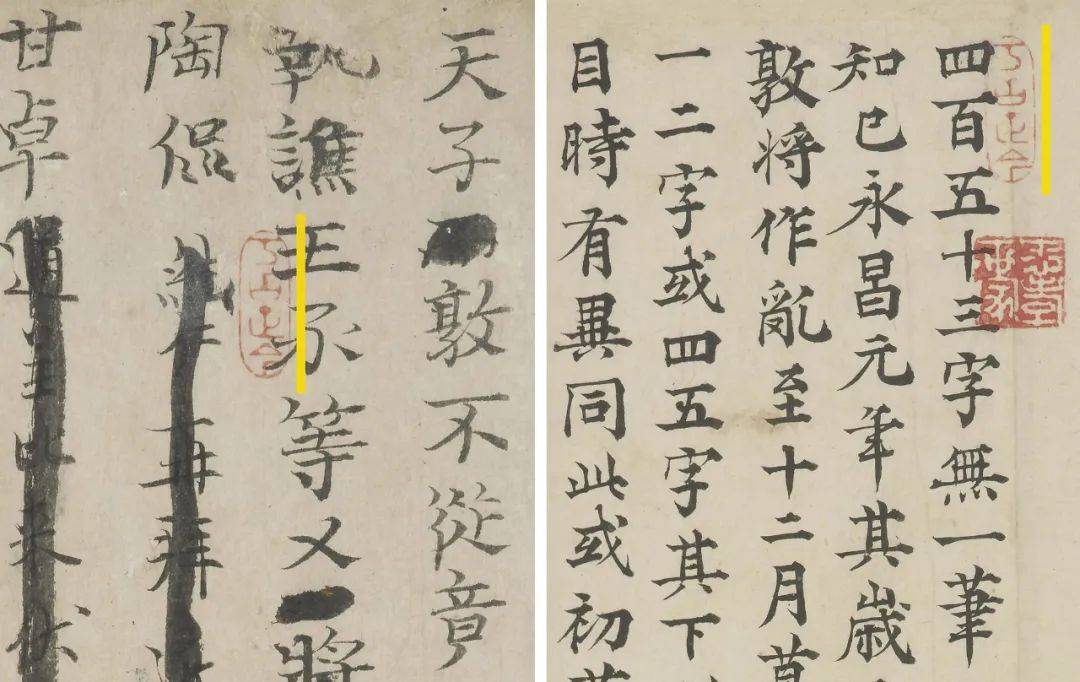 天子敦不從音
執譙王承等又將
陶侃 再拜
甘卓
四百五十三字無一筆
知已永昌元年其歲
敦將作亂至十二月
一二字或四五字其下
目時有異同此或初